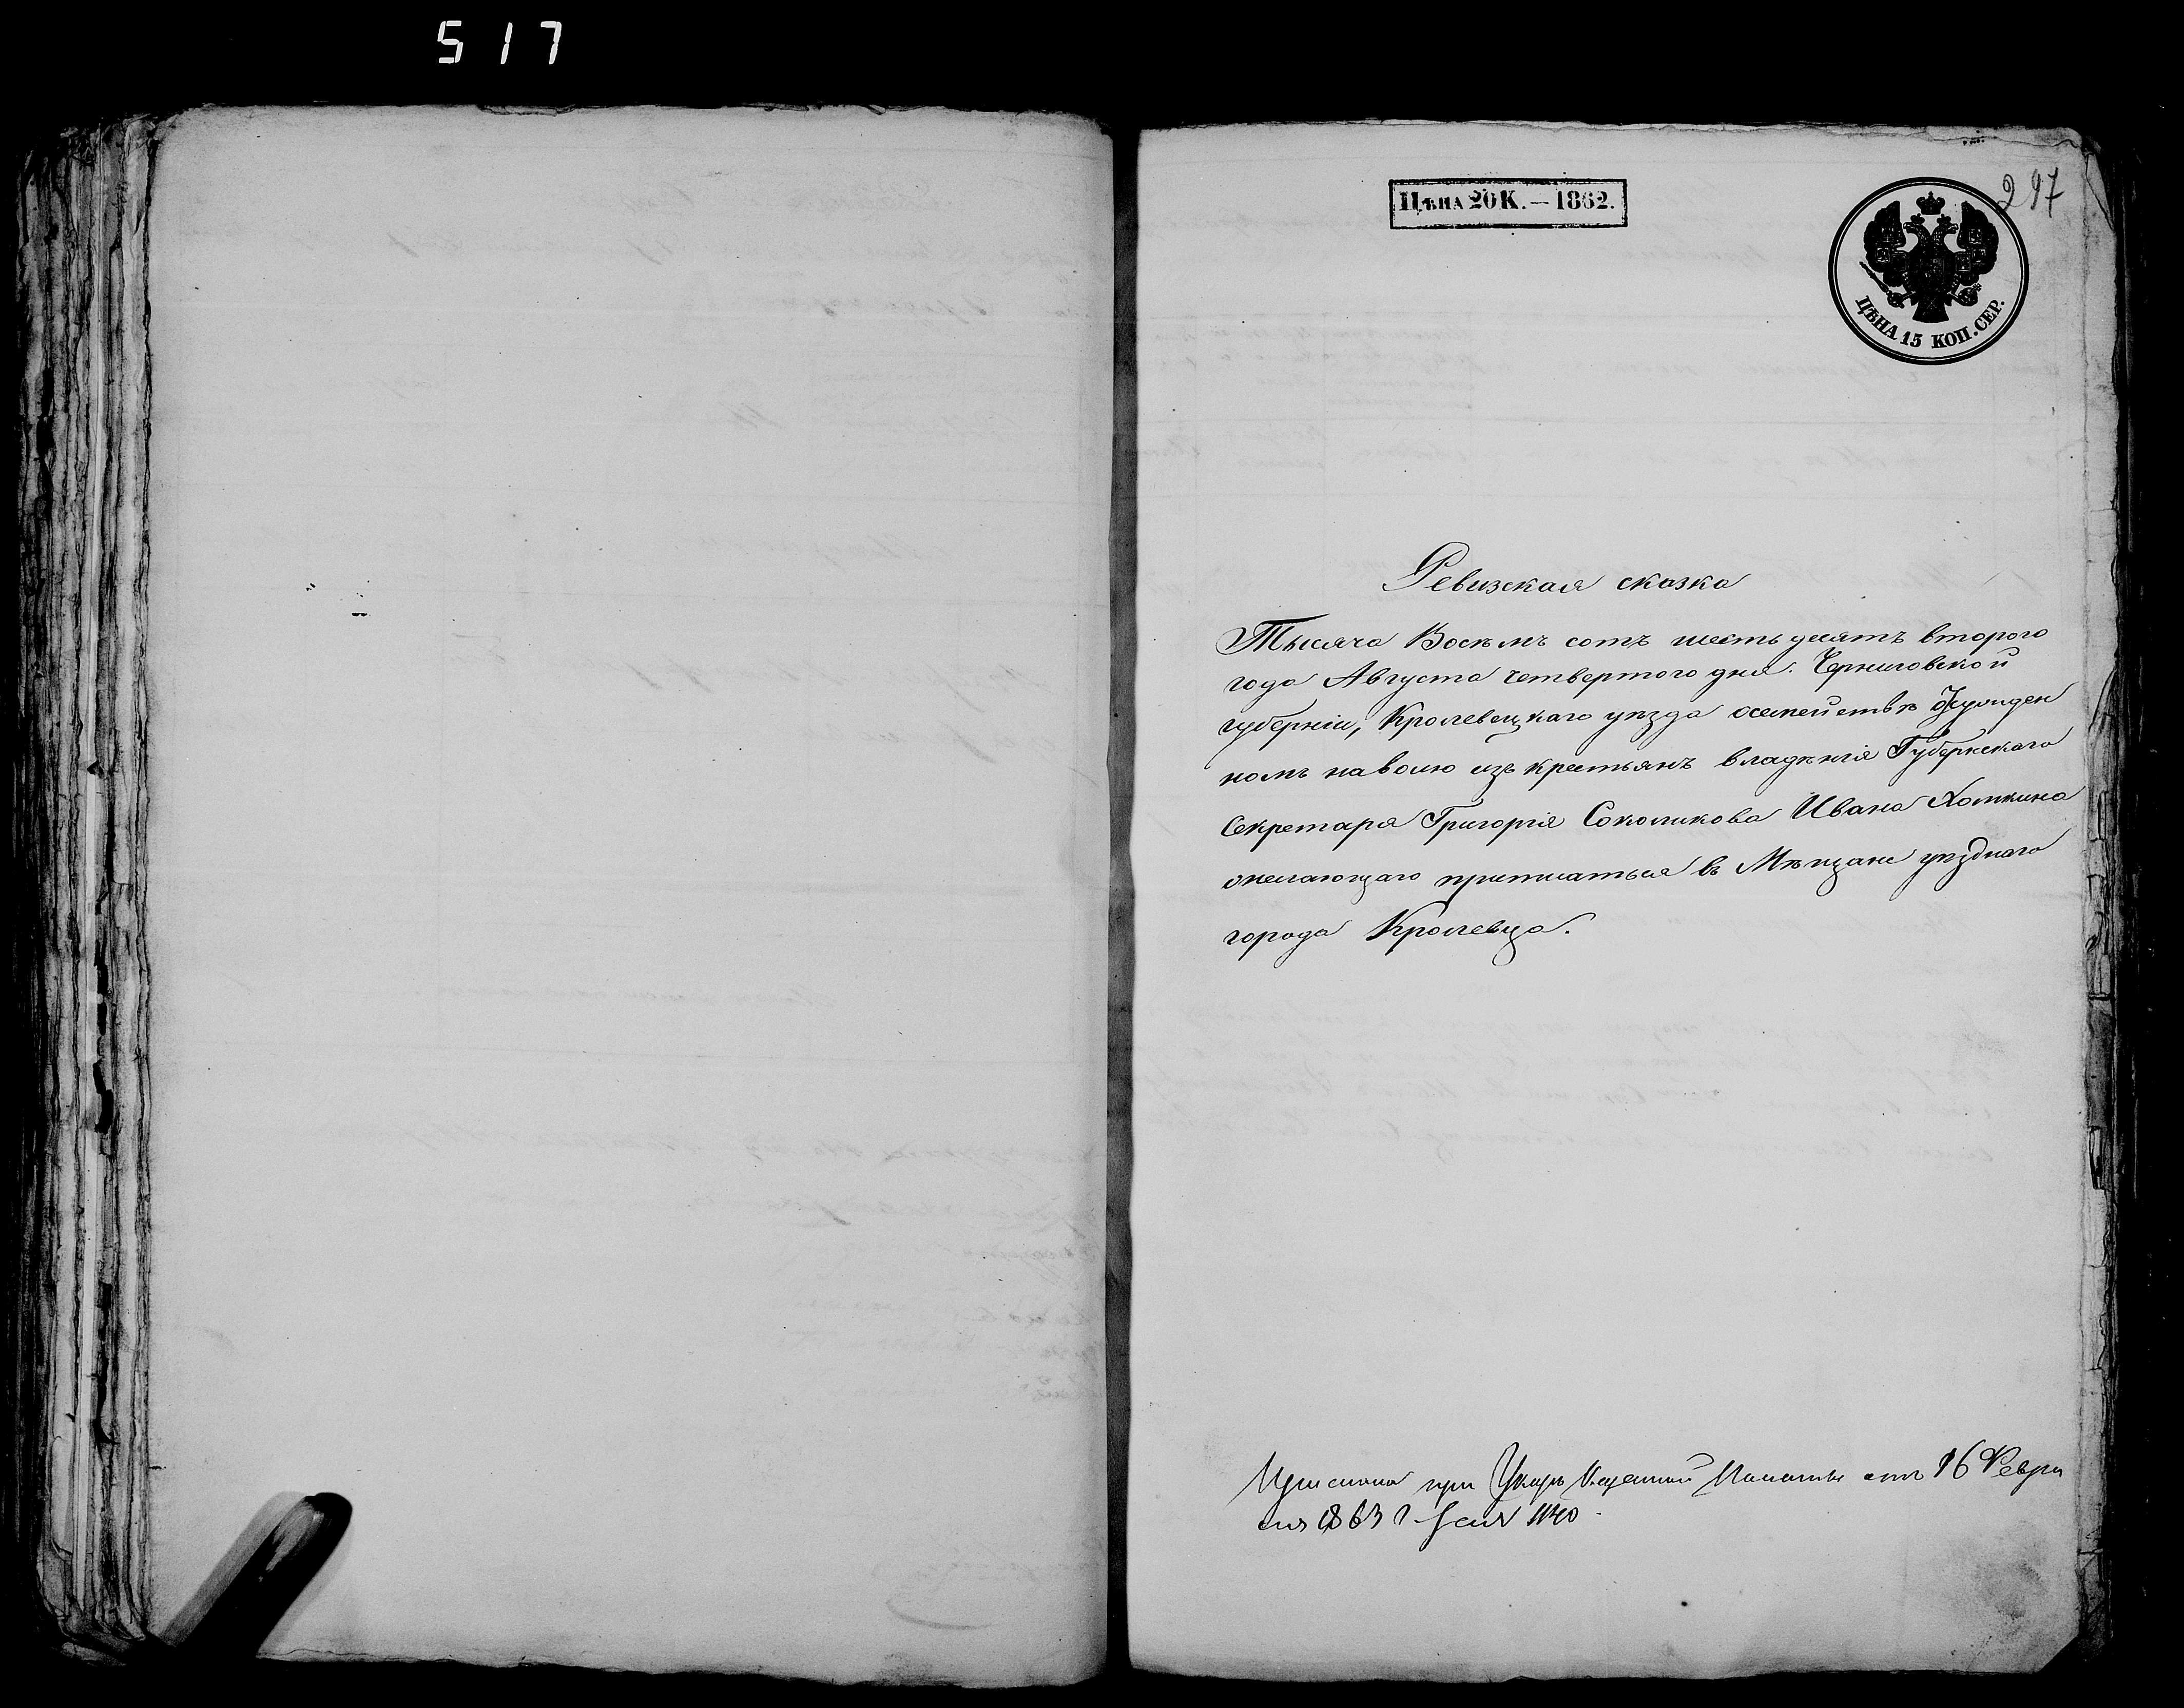 517
297
Цѣна 20 К. — 1862.
ЦѢНА 15 КОП. СЕР.
Ревизская сказка
Тысяча Восемъ сотъ шестьдесятъ второго
года Августа четвертого дня. Черниговской
губерніи, Кролевецкаго уѣзда о семействѣ
номъ на волю изъ крестьянъ владѣнія Губернскаго
Секретаря Григорія Соколикова Ивана Хомкина
желающаго приписаться въ Мѣщане уѣзднаго
города Кролевца.
при Указѣ Казенной Палаты отъ 16 Февра
ля 1863 г.